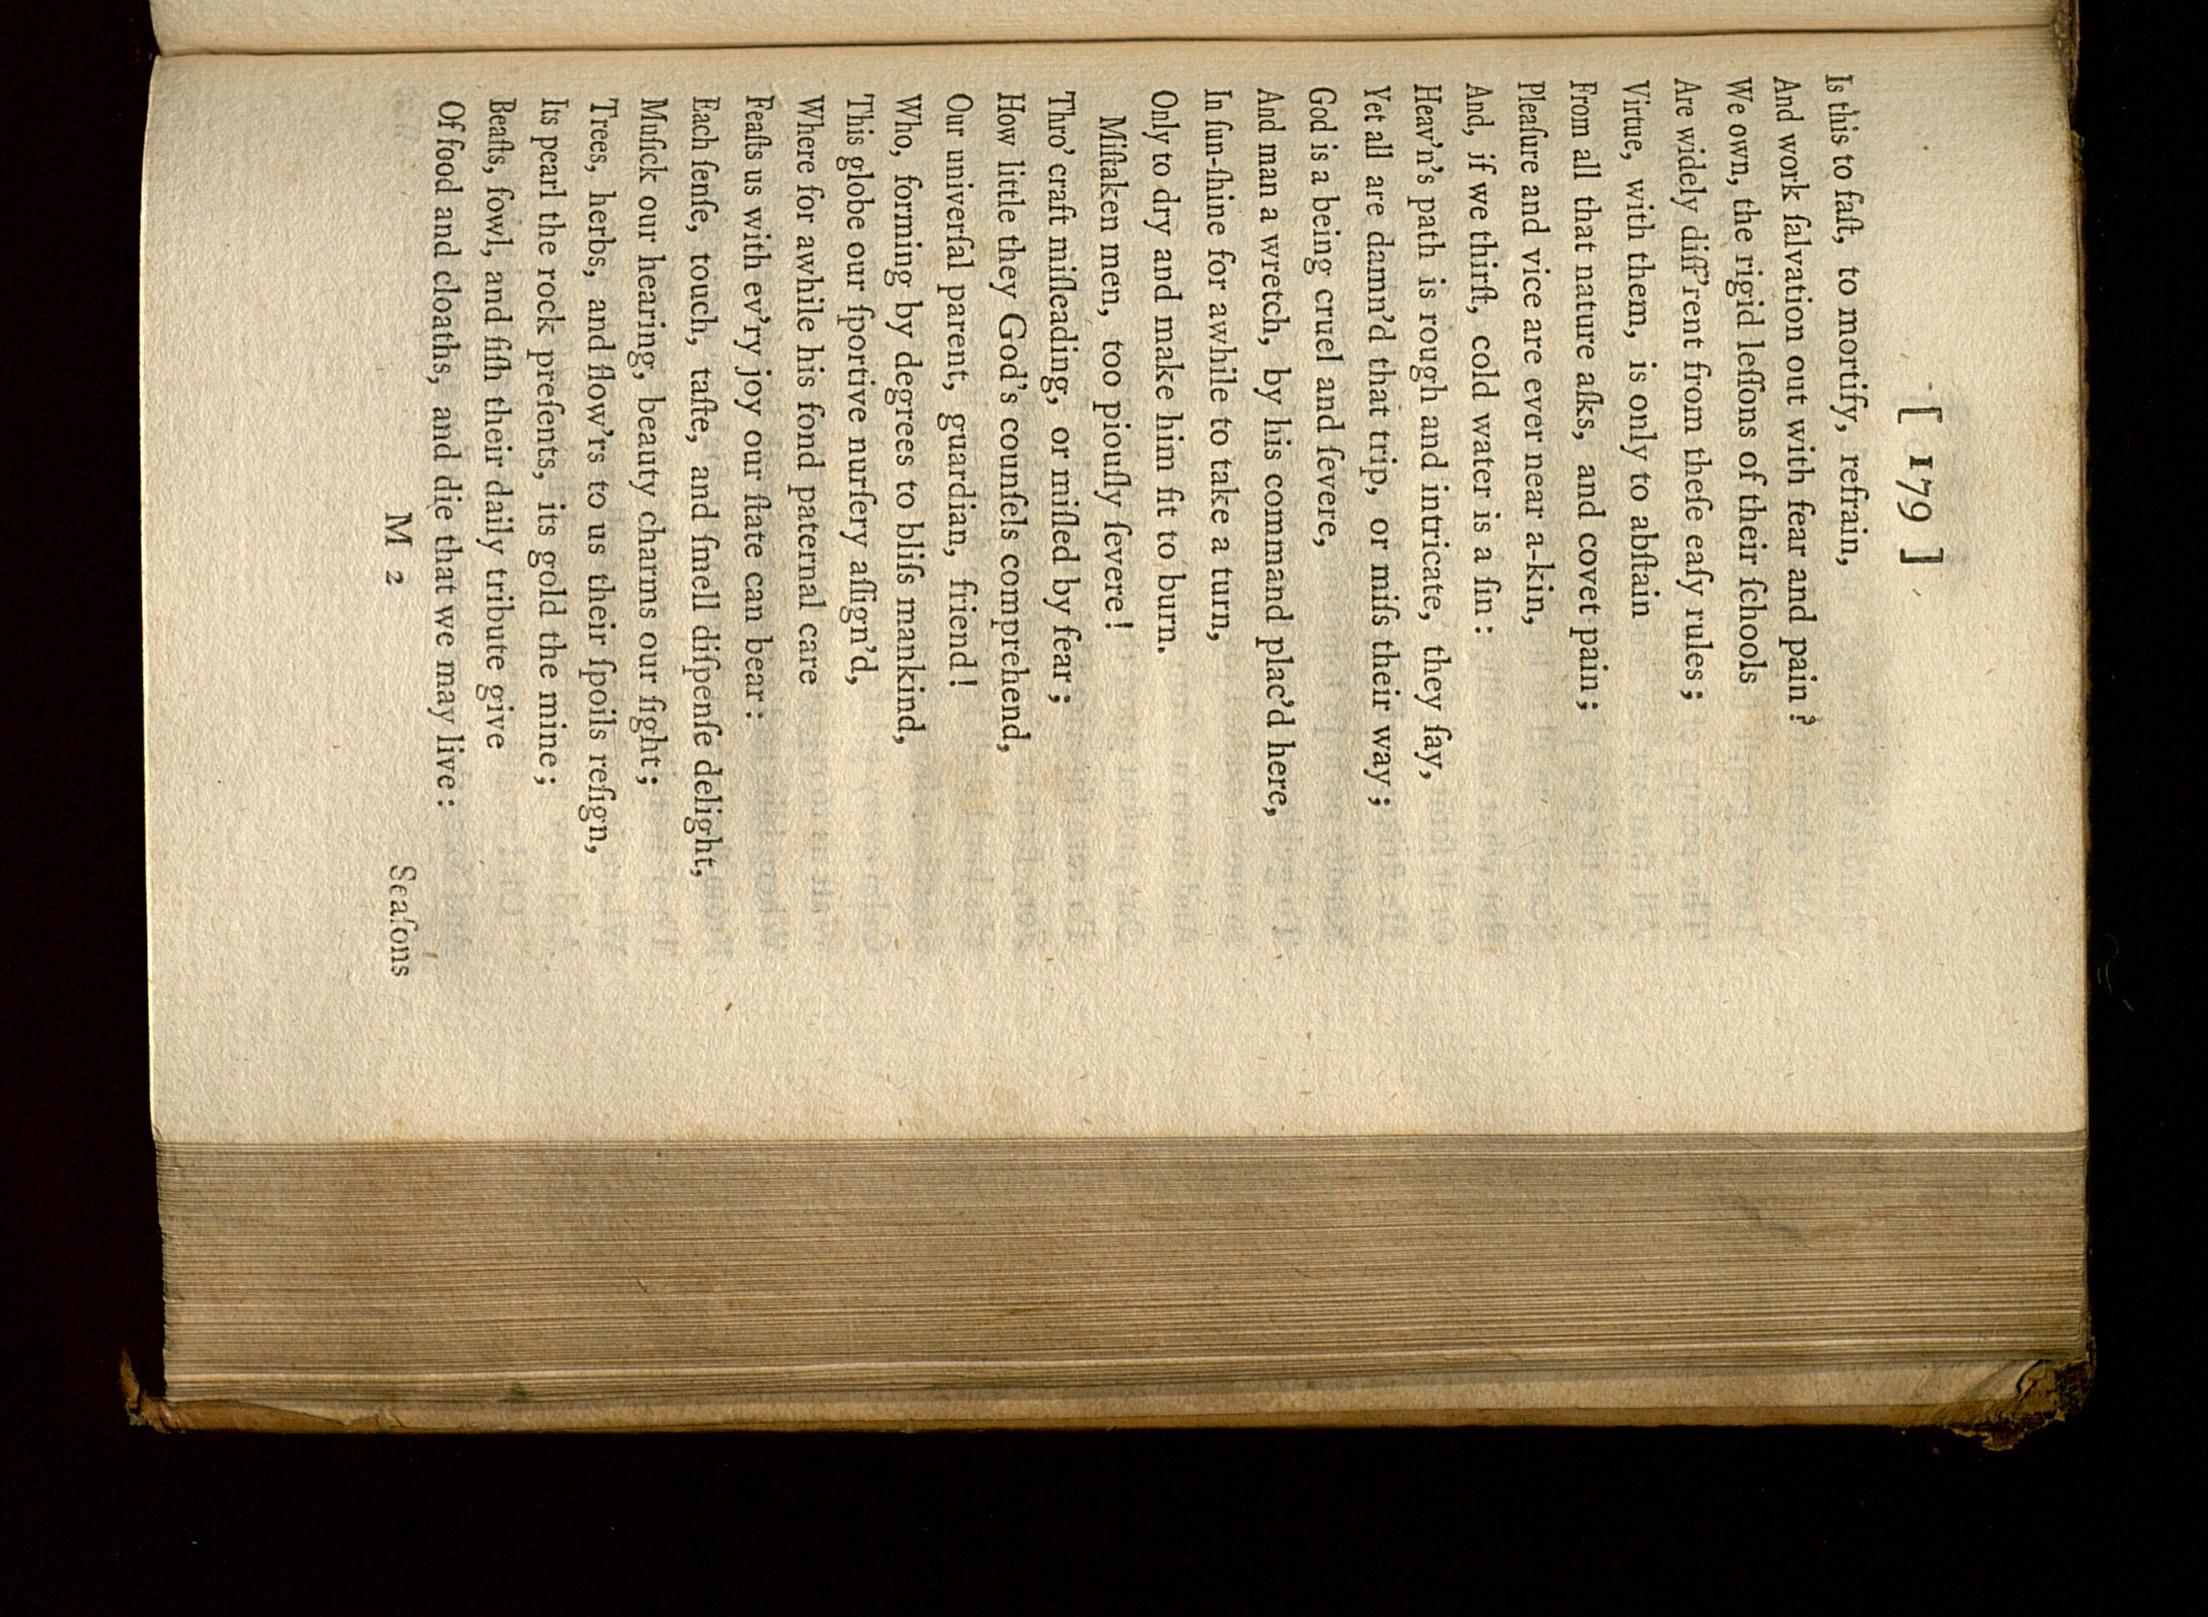 [ 179 ]
Is this to faſt, to mortify, refrain,
And work ſalvation out with fear and pain?
We own, the rigid leſſons of their ſchools
Are widely diff'rent from theſe eaſy rules;
Virtue, with them, is only to abſtain
From all that nature aſks, and covet pain;
Pleaſure and vice are ever near a-kin,
And, if we thirſt, cold water is a ſin:
Heav'n's path is rough and intricate, they ſay,
Yet all are damn'd that trip, or miſs their way;
God is a being cruel and ſevere,
And man a wretch, by his command plac'd here,
In ſun-ſhine for awhile to take a turn,
Only to dry and make him fit to burn.
Miſtaken men, too piouſly ſevere!
Thro' craft miſleading, or miſled by fear;
How little they God's counſels comprehend,
Our univerſal parent, guardian, friend!
Who, forming by degrees to bliſs mankind,
This globe our ſportive nurſery aſſign'd,
Where for awhile his fond paternal care
Feaſts us with ev'ry joy our ſtate can bear:
Each ſenſe, touch, taſte, and ſmell diſpenſe delight,
Muſick our hearing, beauty charms our ſight;
Trees, herbs, and flow'rs to us their ſpoils reſign,
Its pearl the rock preſents, its gold the mine;
Beaſts, fowl, and fiſh their daily tribute give
Of food and cloaths, and die that we may live:
M 2 Seaſons